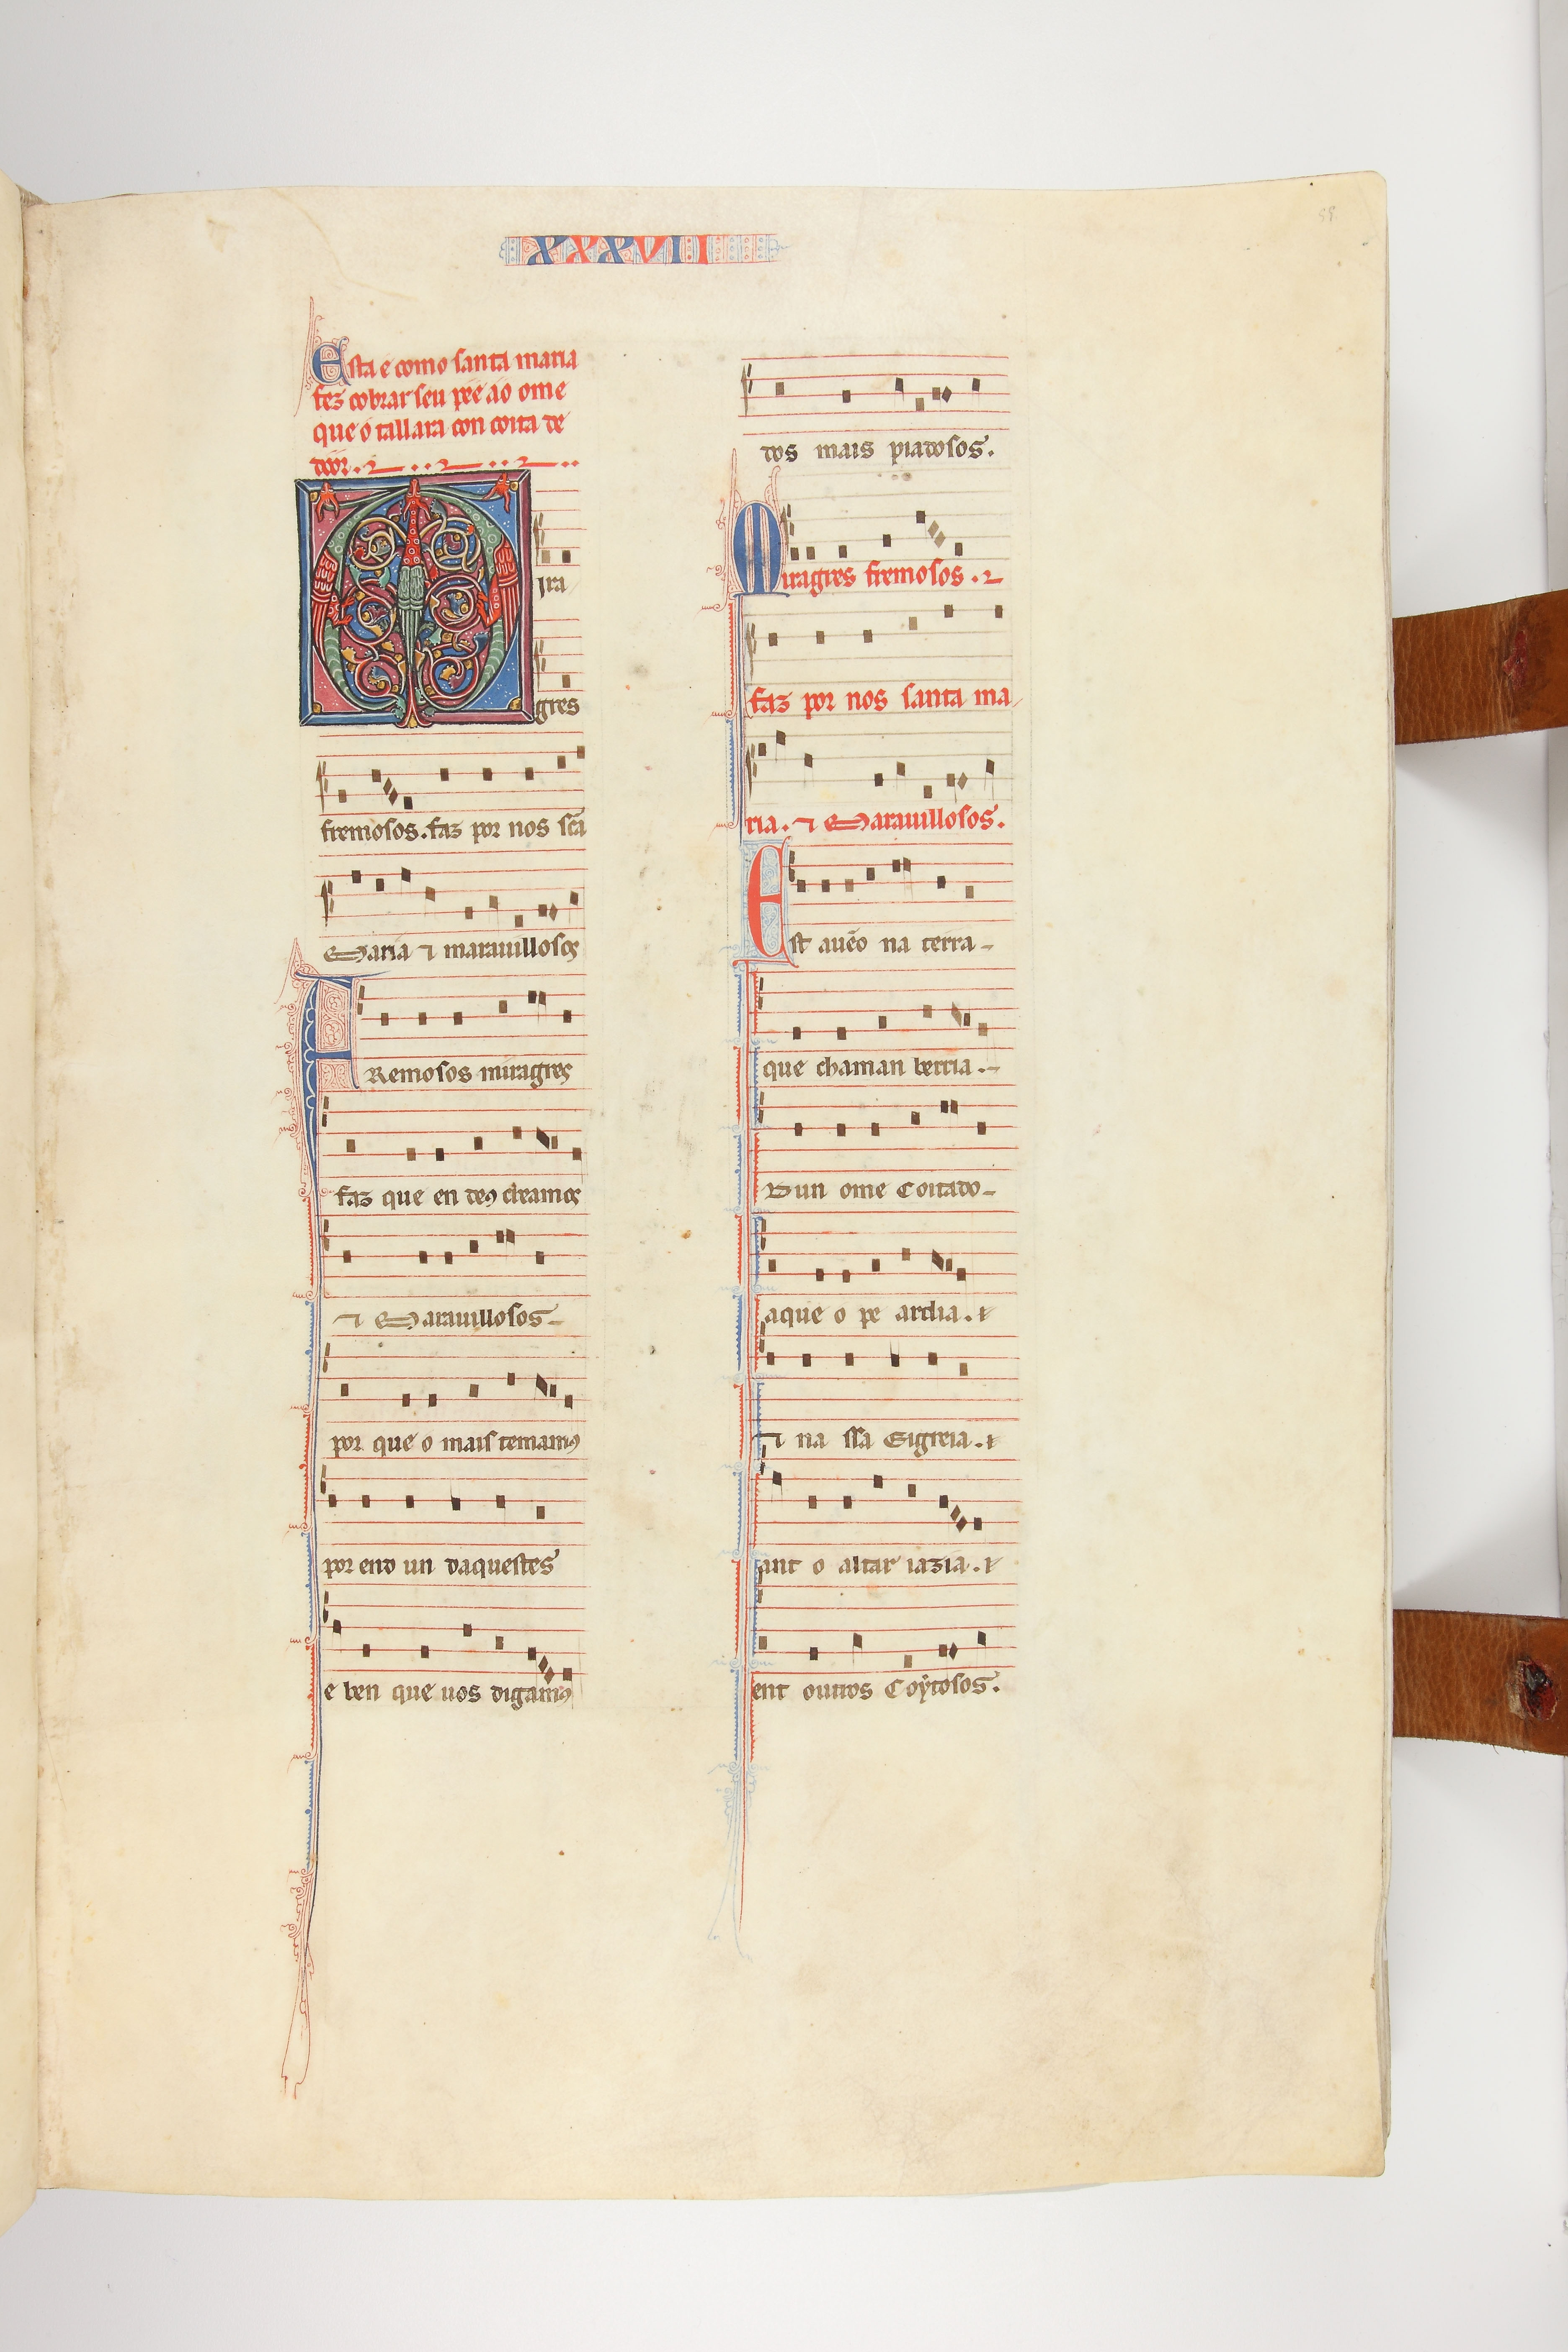 XXXVII
Esta e como santa maria
fez cobrar seu pee áo ome
que o tallara con coita de
door.
Mira
gres
fremosos. faz por nos sc̃a
Maria ⁊ marauillosos
FRemosos miragres
faz que en deꝰ creamos
⁊ Marauillosos
por que o mais temamꝰ
por end un daquestes
e ben que uos digamꝰ
dos mais piadosos.
Miragres fremosos.
faz por nos santa ma
ria. ⁊ Marauillosos.
Est auẽo na terra
que chaman berria.
Dun ome Coitado
aque o pe ardia.
⁊ na ssa Eigreia.
ant o altar iazia.
ent outros Coẏtosos.